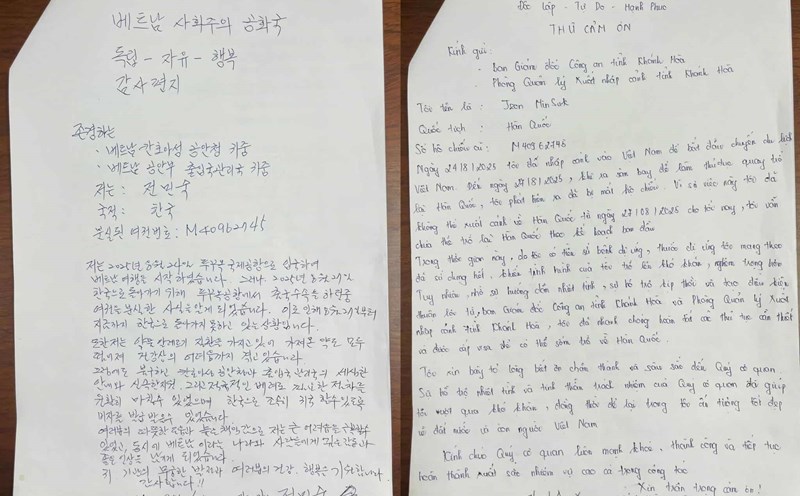 베트남 사회주의 공화국
독립 - 자유 - 행복
감사편지
존경하는
· 베트남 칸호아성 공안청 귀중
· 베트남 공안부 출입국관리국 귀중
저는 : 전민숙
국적 : 한국
분실된 여권번호 : M40962745
저는 2025년 8월 24일 국제공항으로 입국하여
베트남 여행을 시작하였습니다. 그러나 2025년 8월 27일
한국으로 돌아가기 위해 공항에서 출국수속을 하려던
여권을 분실한 사실을 알게 되었습니다. 이로 인해 8월 27일부터
지금까지 한국으로 돌아가지 못하고 있는 상황입니다.
또한 저는 약물 알레르기 질환을 가지고 있어 가져온 약도 모두
떨어져 건강상의 어려움까지 겪고 있습니다.
그럼에도 불구하고 칸호아성 공안청과 출입국관리국의 세심한
안내와 신속한 지원, 그리고 적극적인 배려로 필요한 절차를
원활히 마칠 수 있었으며 한국으로 조속히 귀국할 수 있도록
비자를 발급 받을 수 있었습니다.
여러분의 따뜻한 도움과 높은 책임감으로 저는 큰 어려움을 극복할 수
있었고, 동시에 베트남 이라는 나라와 사람들에게 깊은 감동과
좋은 인상을 남게 되었습니다.
귀 기관의 무궁한 발전과 여러분의 건강, 행복을 기원합니다
감사합니다!!
전민숙
Độc lập - Tự Do - Hạnh Phúc
THƯ CẢM ƠN
Kính gửi :
- Ban Giám đốc Công an tỉnh Khánh Hoà
- Phòng Quản lý Xuất nhập cảnh tỉnh Khánh Hoà
Tôi tên là : Jeon MinSuk
Quốc tịch : Hàn Quốc
Số hộ chiếu cũ : M40962745
Ngày 24/8/2025 tôi đã nhập cảnh vào Việt Nam để bắt đầu chuyến du lịch
Việt Nam. Đến ngày 27/8/2025, khi ra sân bay để làm thủ tục quay trở
lại Hàn Quốc, tôi phát hiện ra đã bị mất hộ chiếu. Vì sự việc này tôi đã
không thể xuất cảnh về Hàn Quốc từ ngày 27/08/2025 cho tới nay, tôi vẫn
chưa thể trở lại Hàn Quốc theo kế hoạch ban đầu
Trong thời gian này, do tôi có tiền sử bệnh dị ứng, thuốc dị ứng tôi mang theo
đã sử dụng hết, khiến tình hình của tôi trở lên khó khăn, nghiêm trọng hơn
Tuy nhiên, nhờ sự hướng dẫn nhiệt tình, sự hỗ trợ kịp thời và tạo điều kiện
thuận lợi từ, Ban Giám đốc Công an tỉnh Khánh Hoà và Phòng Quản lý Xuất
nhập cảnh tỉnh Khánh Hoà, tôi đã nhanh chóng hoàn tất các thủ tục cần thiết
và được cấp visa để có thể sớm trở về Hàn Quốc.
Tôi xin bày tỏ lòng biết ơn chân thành và sâu sắc đến Quý cơ quan.
Sự hỗ trợ nhiệt tình và tinh thần trách nhiệm của Quý cơ quan đã giúp
tôi vượt qua khó khăn, đồng thời để lại trong tôi ấn tượng tốt đẹp
về đất nước và con người Việt Nam
Kính chúc Quý cơ quan luôn mạnh khoẻ, thành công và tiếp tục
hoàn thành xuất sắc nhiệm vụ cao cả trong công tác
Xin trân trọng cảm ơn !